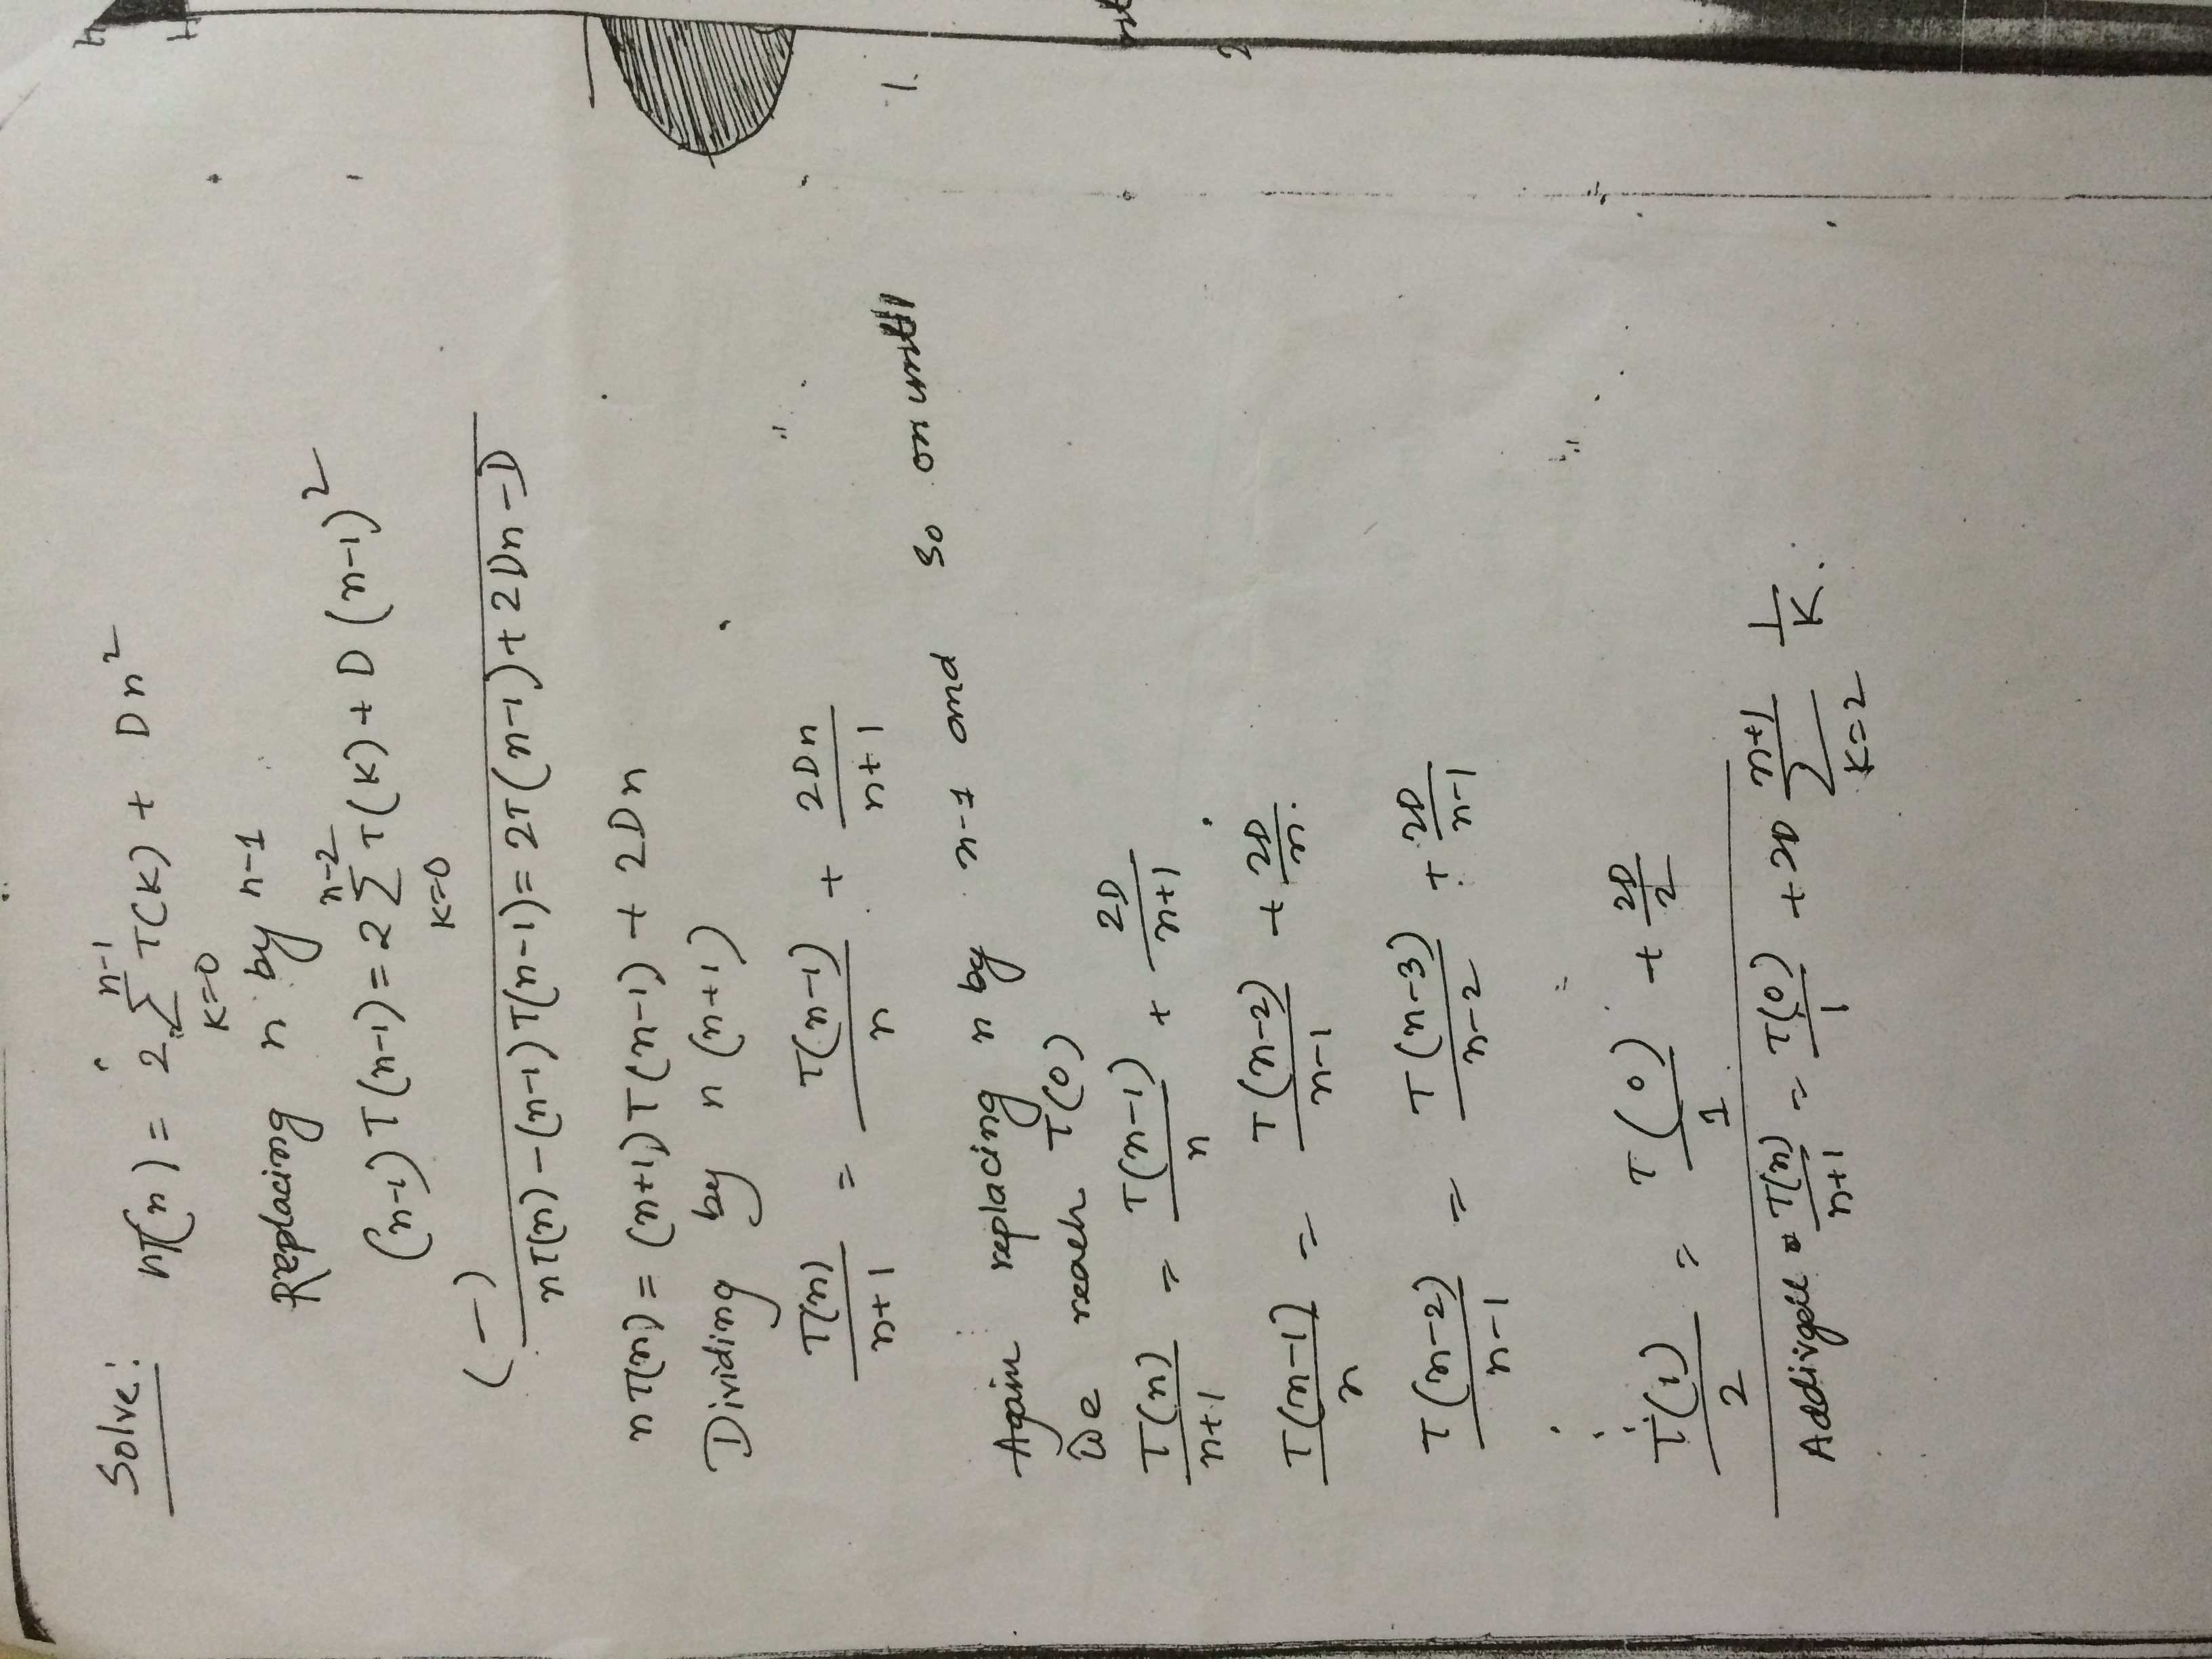 Solve: nT(n) = 2 ∑_{K=0}^{n-1} T(K) + Dn²
Replacing n by n-1
(n-1) T(n-1) = 2 ∑_{K=0}^{n-2} T(K) + D (n-1)²
(-)
nT(n) - (n-1) T(n-1) = 2T(n-1) + 2Dn - D
nT(n) = (n+1) T(n-1) + 2Dn
Dividing by n (n+1)
T(n)/n+1 = T(n-1)/n + 2Dn/n+1
Again replacing n by n-1 and so on until
We reach T(0)
T(n)/n+1 = T(n-1)/n + 2D/n+1
T(n-1)/n = T(n-2)/n-1 + 2D/n.
T(n-2)/n-1 = T(n-3)/n-2 + 2D/n-1
T(1)/2 = T(0)/1 + 2D/2
T(n)/n+1 = T(0)/1 + 2D ∑_{K=2}^{n+1} 1/K.
1.
2